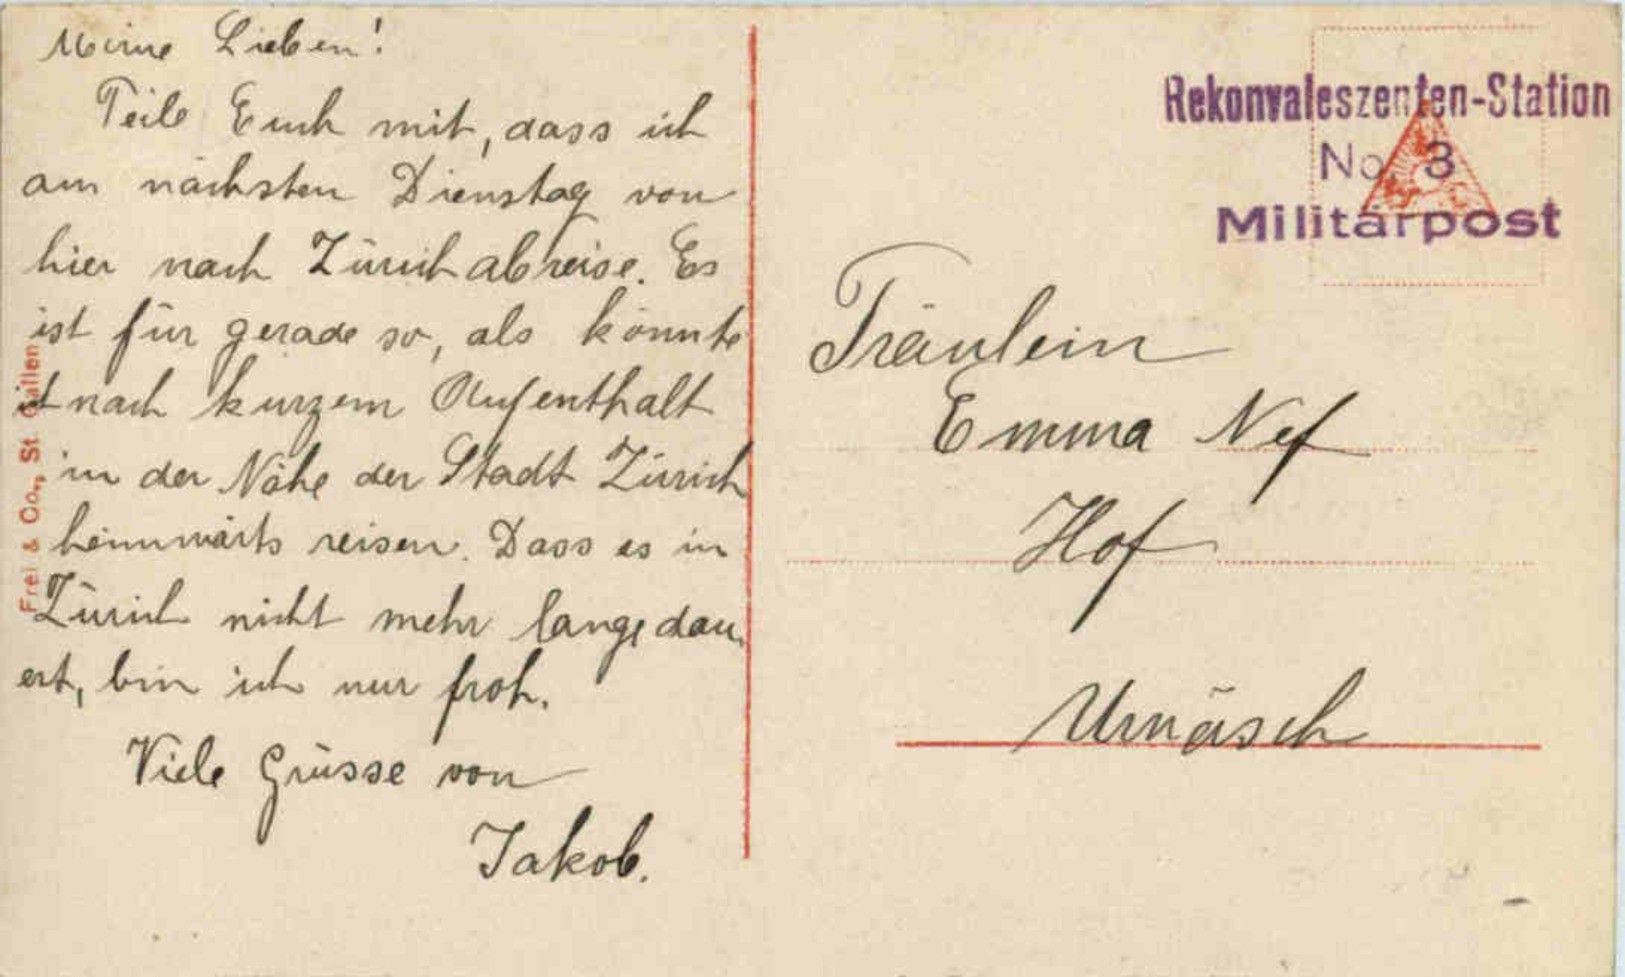 Meine Lieben!
Teile Euch mit, dass ich
am nächsten Dienstag von
hier nach Zürich abreise. Es
ist für gerade so, als könnte
ich nach kurzem Aufenthalt
in der Nähe der Stadt Zürich
heimwärts reisen. Dass es in
Zürich nicht mehr lange dau-
ert, bin ich nur froh.
Viele Grüsse von
Jakob.
Frei & Co., St. Gallen
Rekonvaleszenten-Station
No. 3
Militärpost
Fräulein
Emma Nef
Hof
Urnäsch